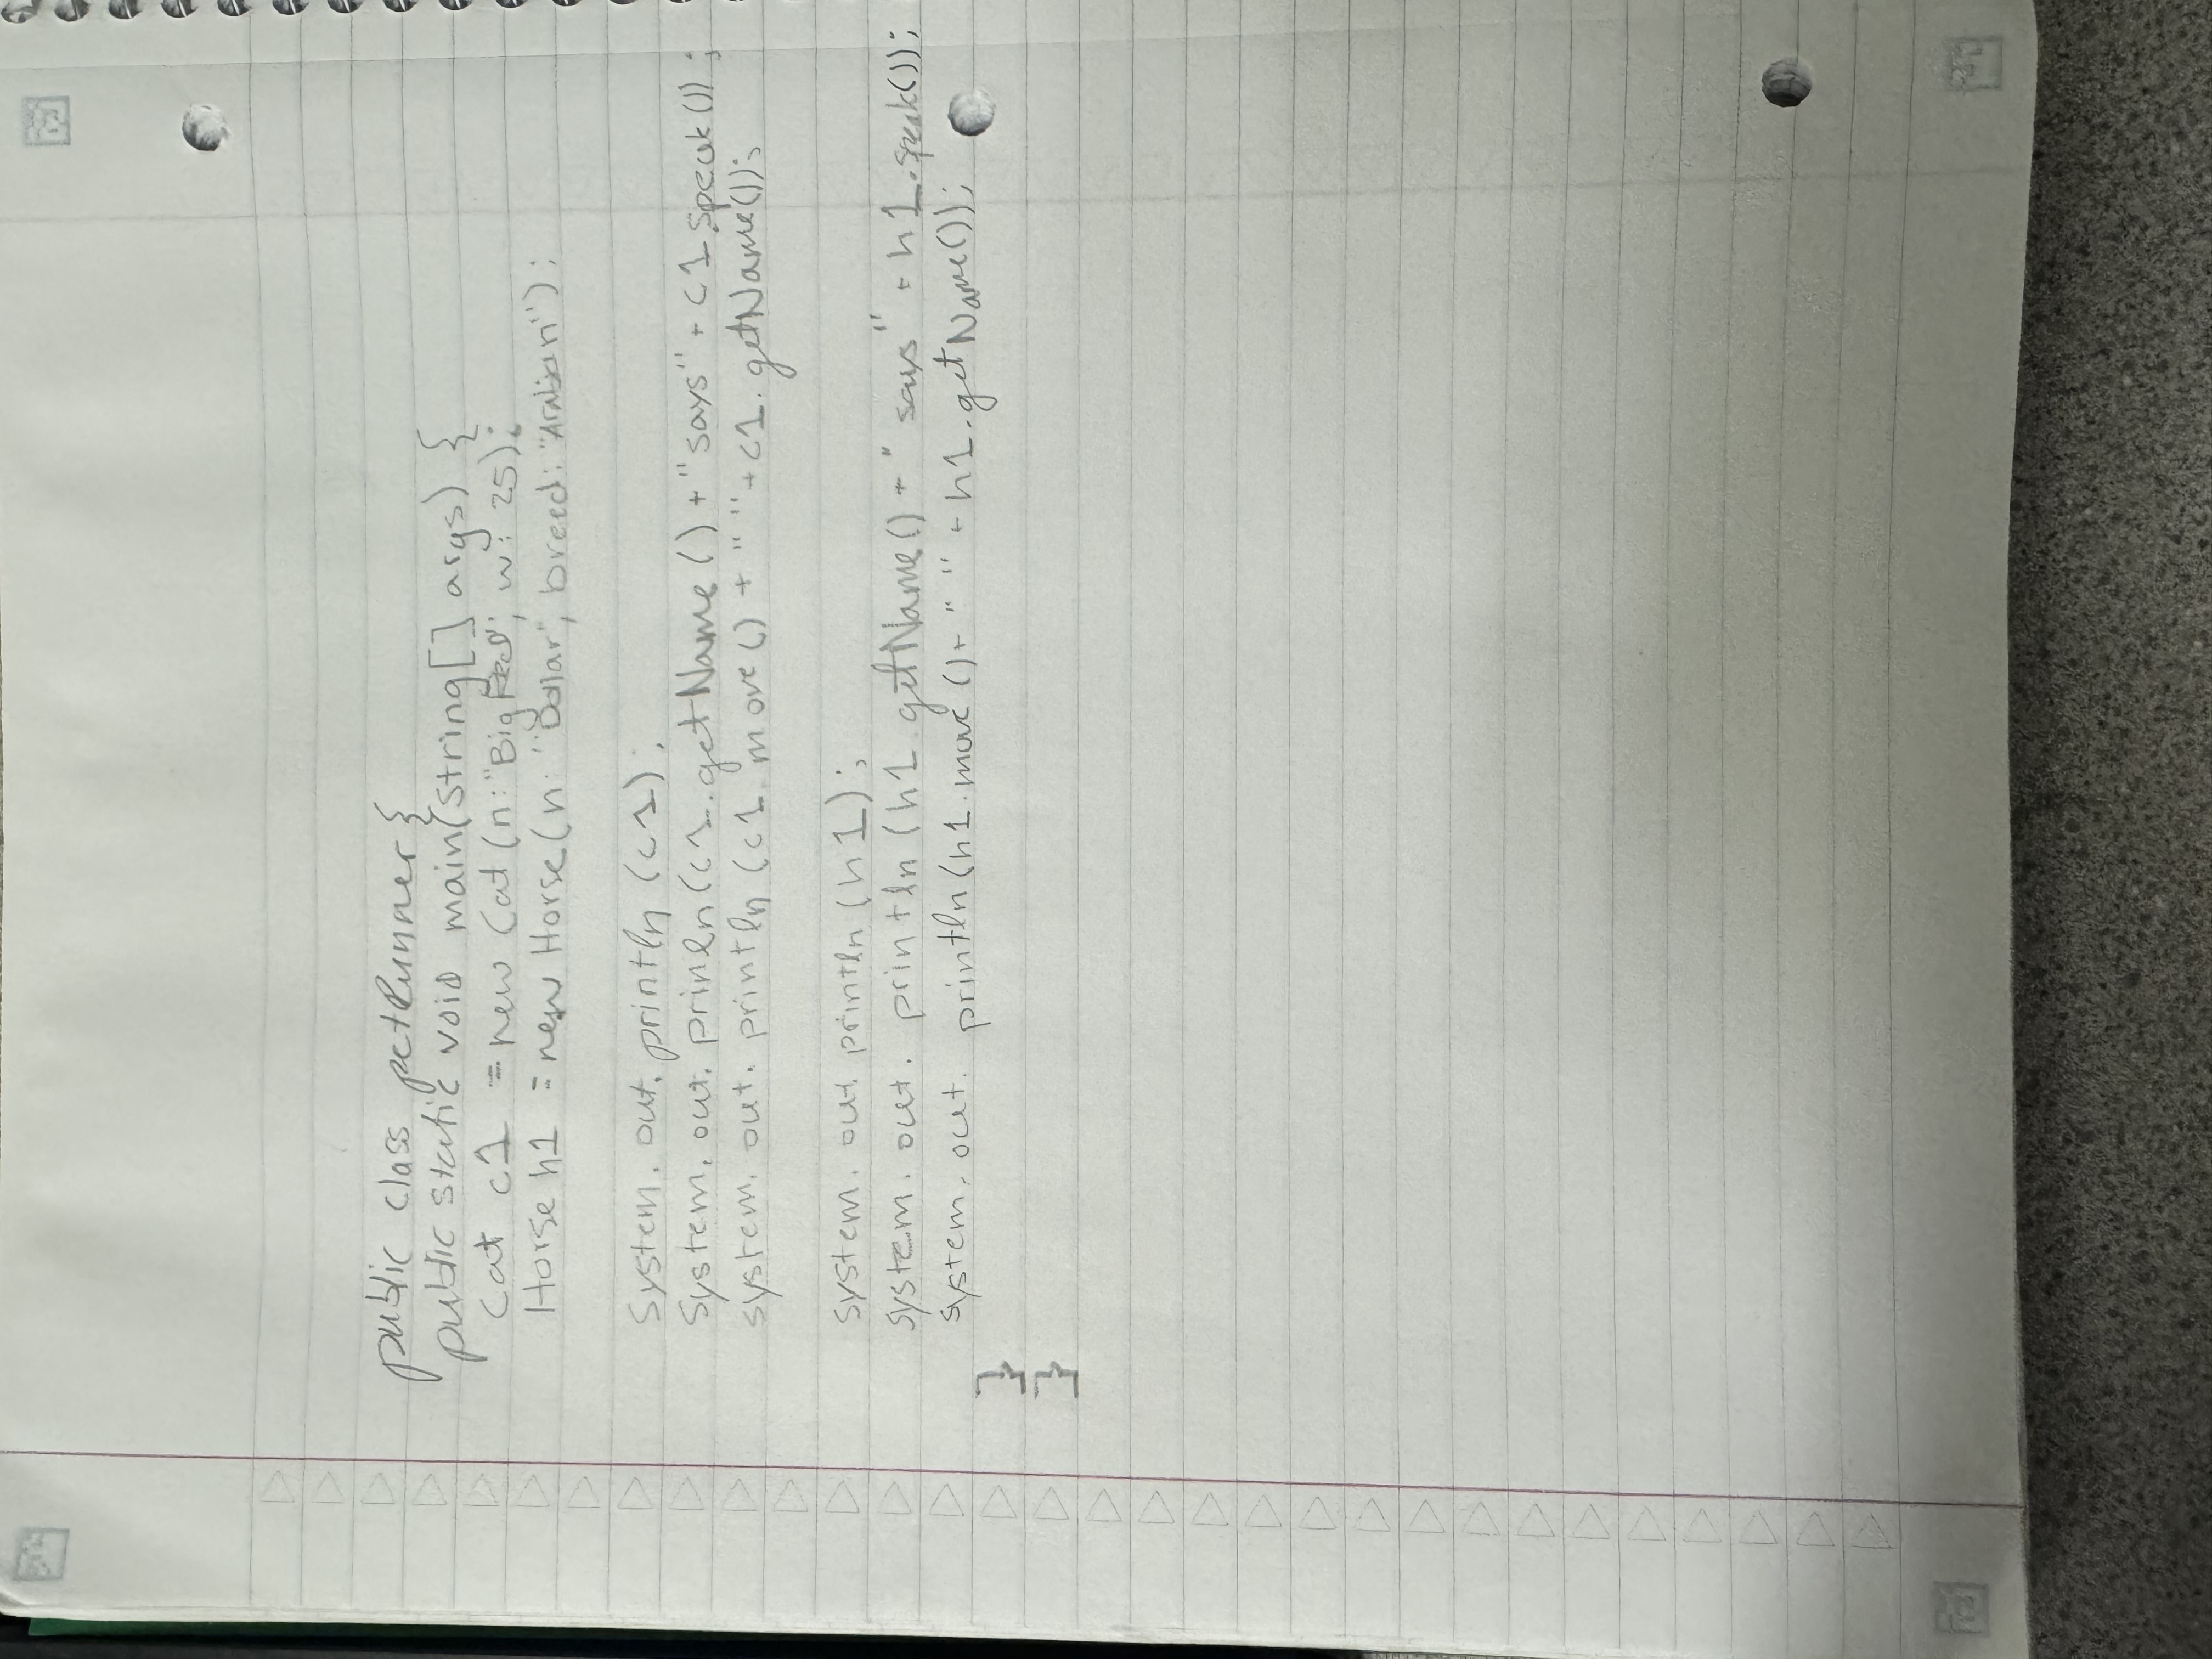 public class petRunner {
public static void main(String[] args) {
Cat c1 = new Cat (n: "Big Red", w: 25);
Horse h1 = new Horse (n: "Dollar", breed: "Arabian");
System. out. println (c1);
System. out. prinln (c1. getName () + "says" + c1. speak ());
system. out. println (c1. move () + " " + c1. getName());
system. out. println (h1);
system. out. println (h1. getName() + " says" + h1. speak());
system. out. println (h1. move () + " " + h1. getName());
}
}